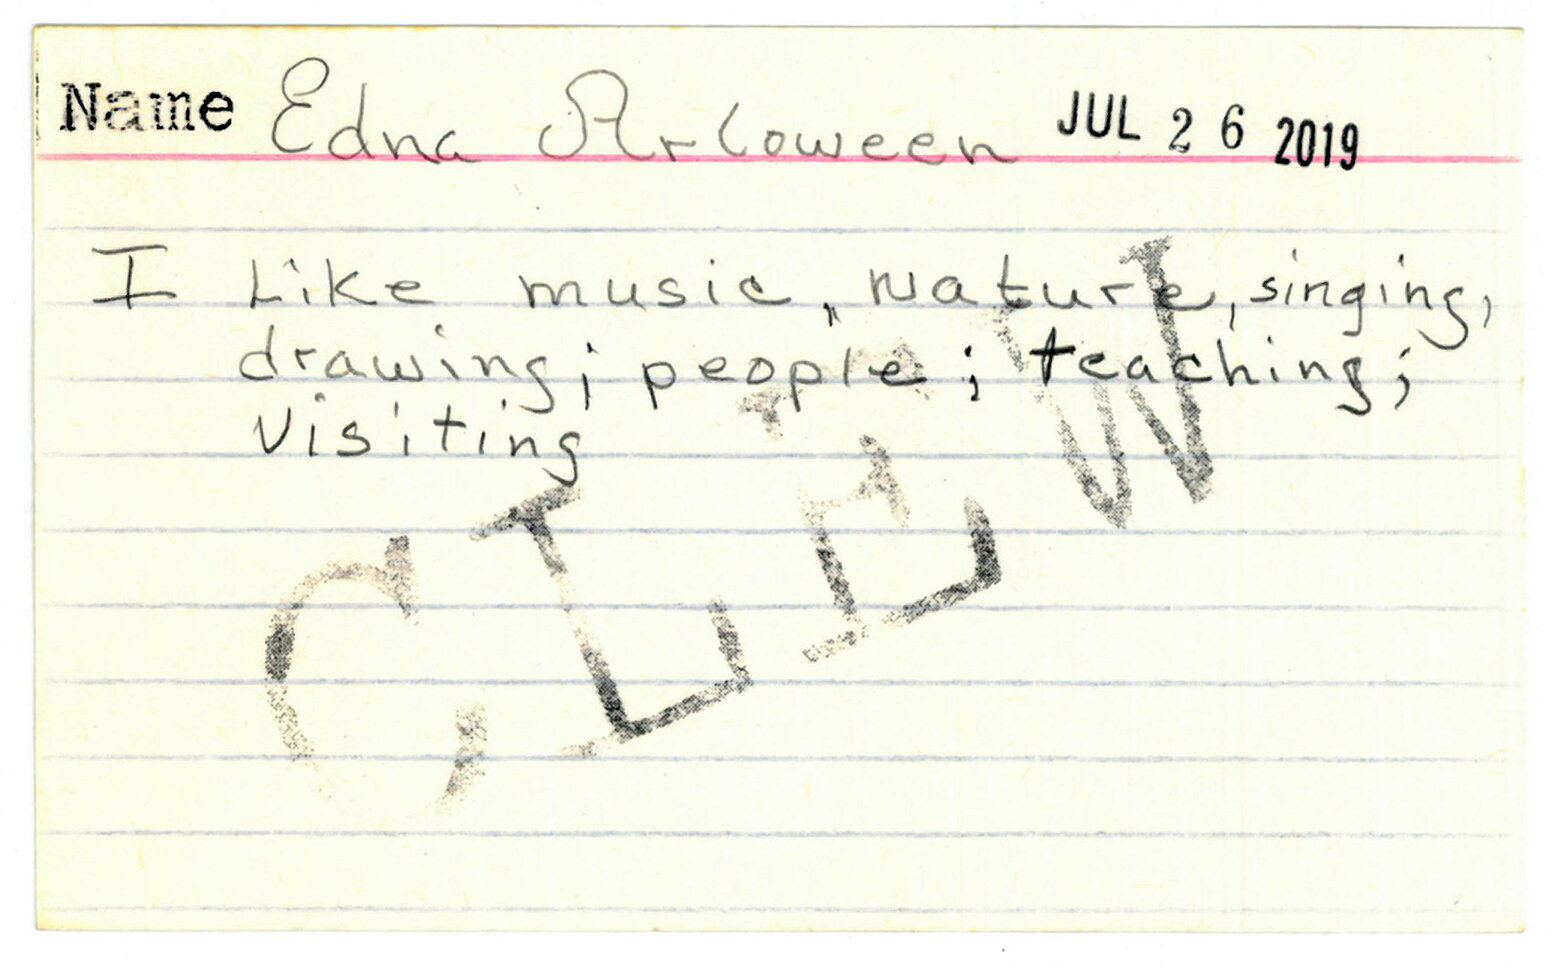 Name Edna Arloween JUL 26 2019
I Like music, Nature, singing,
drawing; people; teaching;
visiting
CLEW